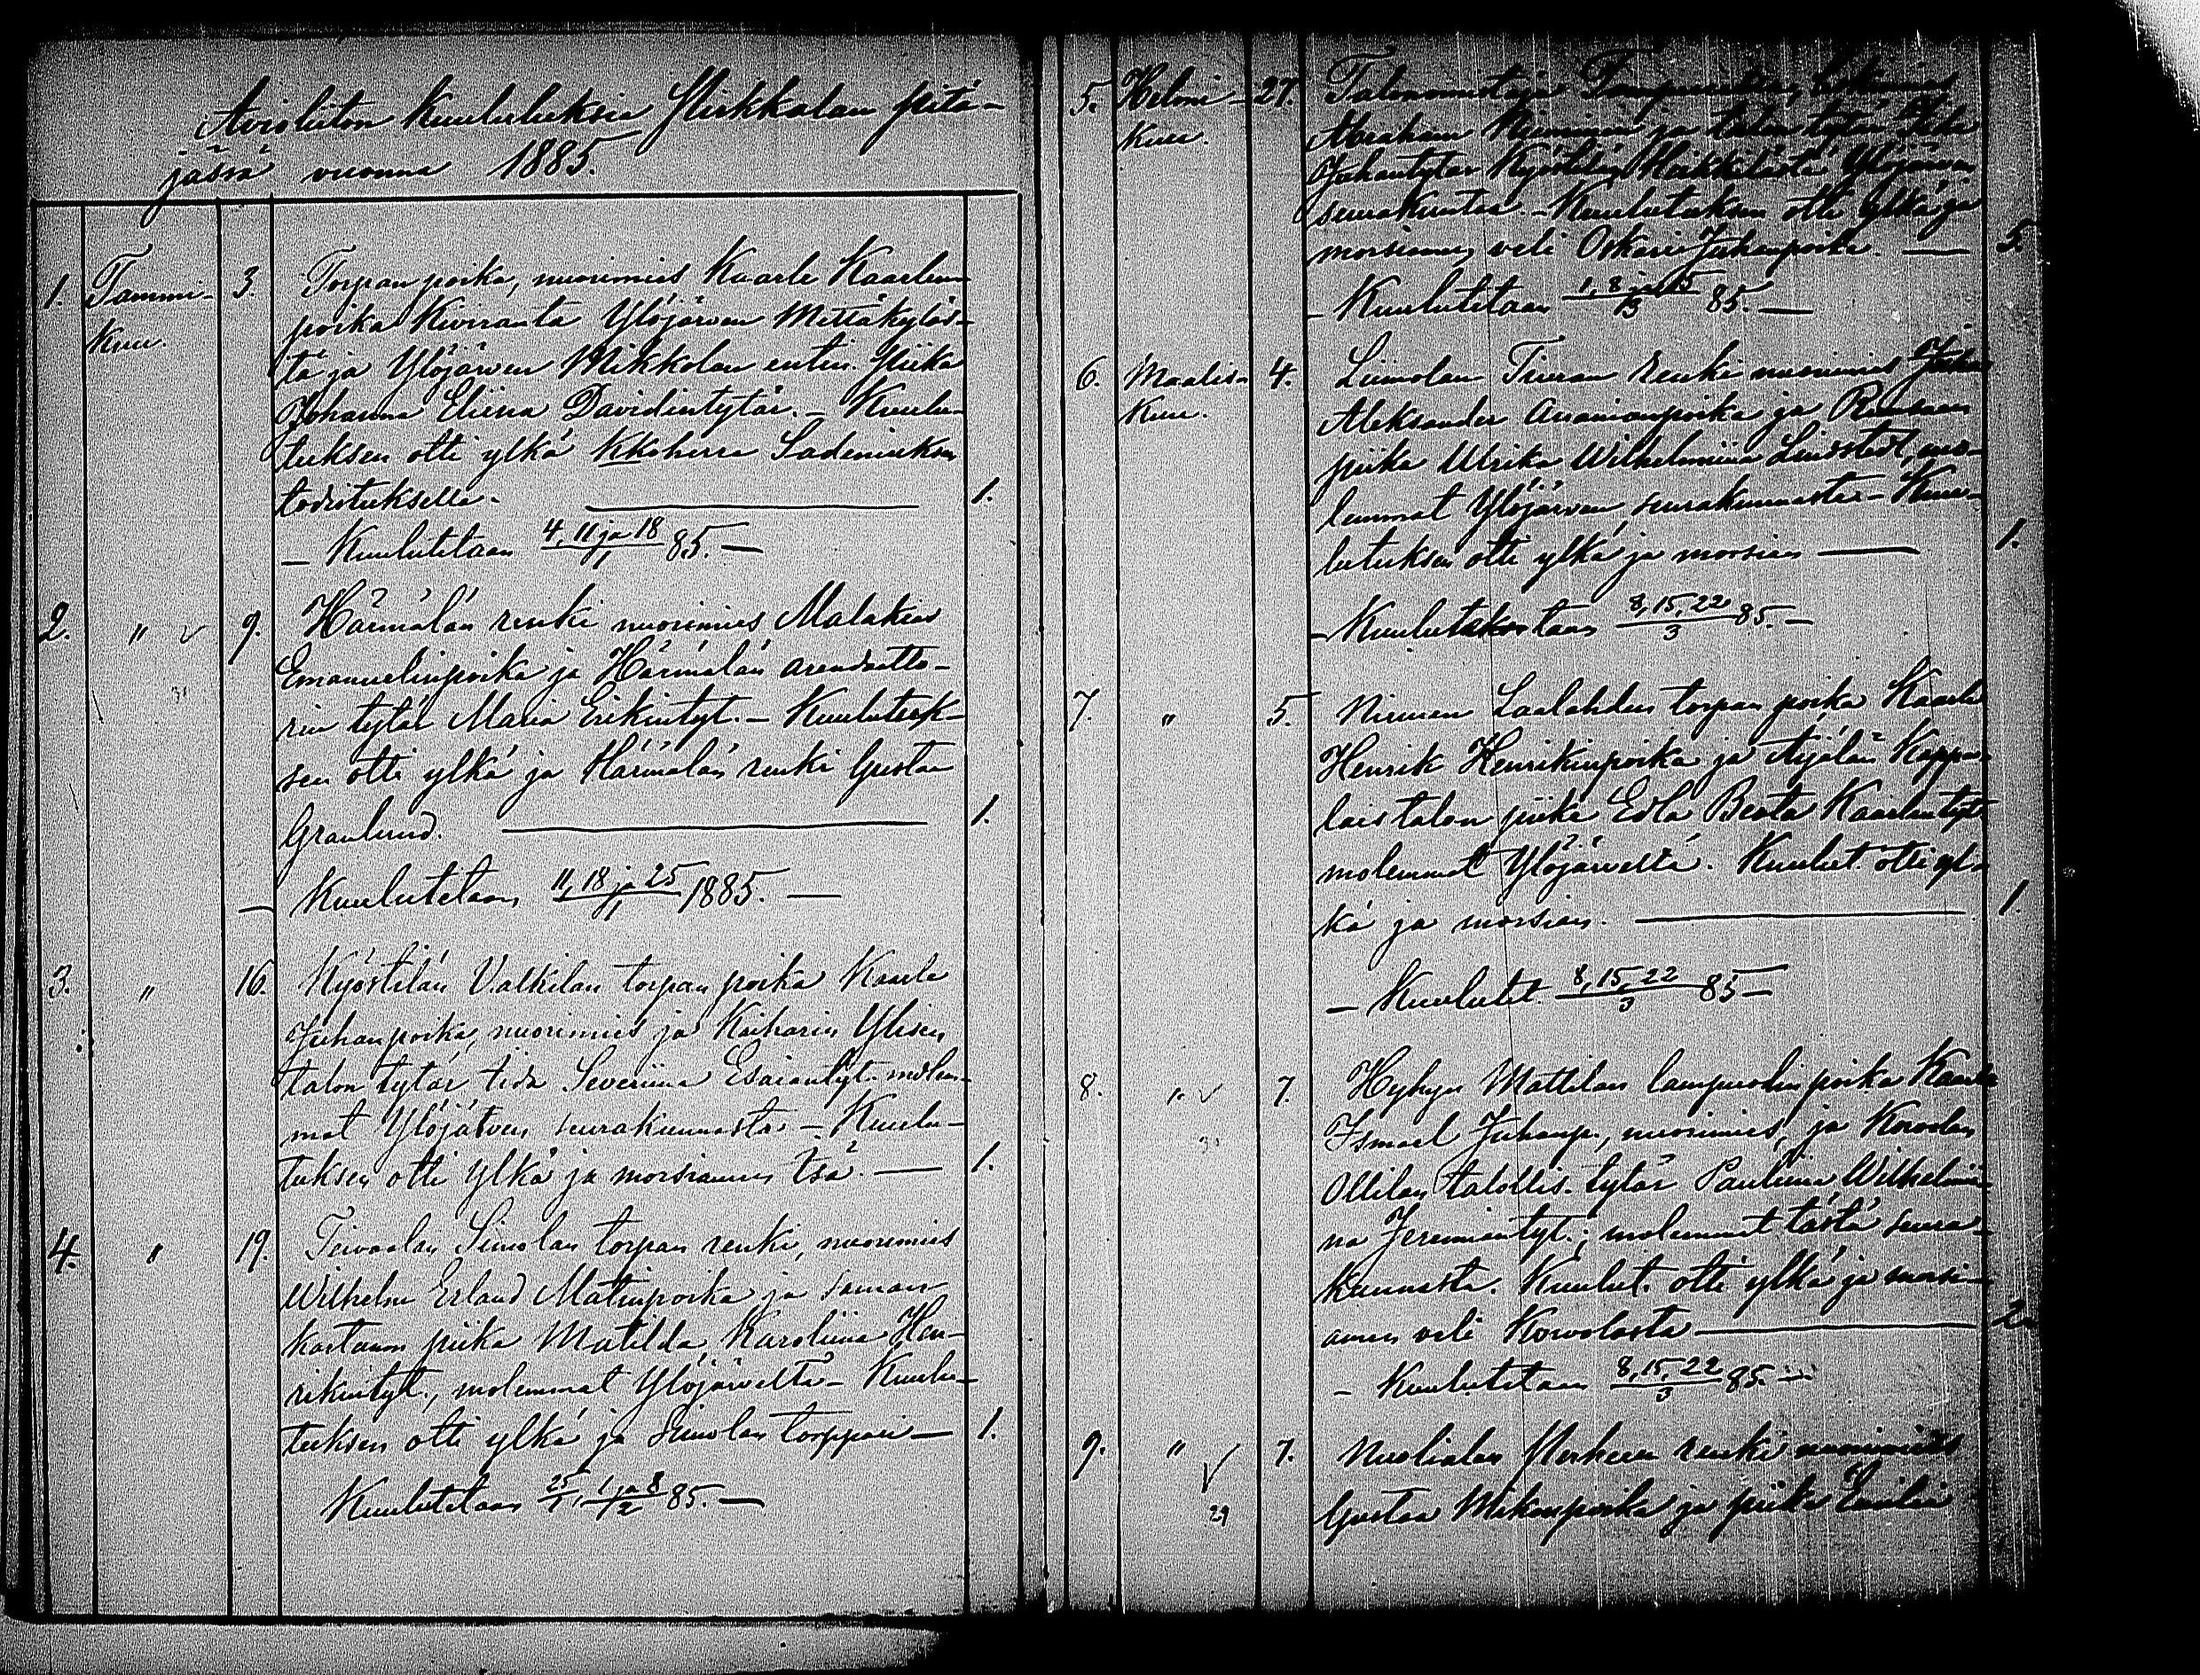 Avioliiton Kuulutuksia Pirkkalan pitä-
jässä vuonna 1885.
1. Tammi- 3. Torpan poika, nuorimies Kaarle Kaarlen
kuu. poika Kiviranta Ylöjärven Metsäkyläs-
tä ja Ylöjärven Mikkolan entin. Piika
Johanna Eliina Davidintytär. - Kuulu-
tuksen otti ylkä Kkoherra Sadeniuksen
todistuksella. 1.
- Kuulutetaan 4, 11 ja 18/1 85. -
2. " 9. Härmälän renki nuorimies Malakias
Emanuelinpoika ja Härmälän arendatto-
rin tytär Maria Erikintyt. - Kuulutuk-
sen otti ylkä ja Härmälän renki Gustaa
Granlund. 1.
- Kuulutetaan 11, 18 ja 25/1 1885. -
3. " 16. Kyöstilän Valkilan torpan poika Kaarle
Juhanpoika, nuorimies ja Kaiharin Ylisen
talon tytär Severiina Esaiantyt. molem-
mat Ylöjärven seurakunnasta - Kuulu-
tuksen otti ylkä ja morsiamen Isä. - 1.
4. " 19. Teivaalan Simolan torpan renki, nuorimies
Wilhelm Erland Matinpoika ja saman
kartanon piika Matilda Karoliina Hen-
rikintyt., molemmat Ylöjärveltä - Kuulu-
tuksen otti ylkä ja Simolan torppari - 1.
Kuulutetaan 25/1, 1 ja 8/2 85. -
5. Helmi- 27. Talonomistaja Tampereelta,
kuu. Abraham ja talon tytär Ida
Juhantytär Kyöstilän Heikkilästä Ylöjärven
seurakuntaa. - Kuulutuksen otti ylkä ja
morsiamen veli Oskari Juhanpoika. - 5.
- Kuulutetaan 1, 8 ja 15/3 85. -
6. Maalis- 4. renki nuorimies Juha
kuu. Aleksander Ananianpoika ja
piika Ulrika Wilhelmiina Lindstedt, mo-
lemmat Ylöjärven seurakunnasta - Kuu-
lutuksen otti ylkä ja morsian - 1.
- Kuulutetaan 8, 15, 22/3 85. -
7. " 5. Niemen Laalahden torpan poika Kaarle
Henrik Henrikinpoika ja Äijälän Koppa-
lais talon piika Edla Beata Kaarlentyt
molemmat Ylöjärveltä. Kuulut. otti yl-
kä ja morsian. 1.
- Kuulutet. 8, 15, 22/3 85 -
8. " 7. Hyhyn Mattilan lampuodin poika Kaarle
Ismael Juhanp., nuorimies, ja Korvolan
Ollilan talollis. tytär Pauliina Wilhelmii-
na Jeremiantyt.; molemmat tästä seura-
kunnasta. Kuulut. otti ylkä ja morsi-
amen veli Korvolasta - 2.
- Kuulutetaan 8, 15, 22/3 85. -
9. " 7. Nuolialan renki nuorimies
29 Gustaa Mikonpoika ja piika Emilia